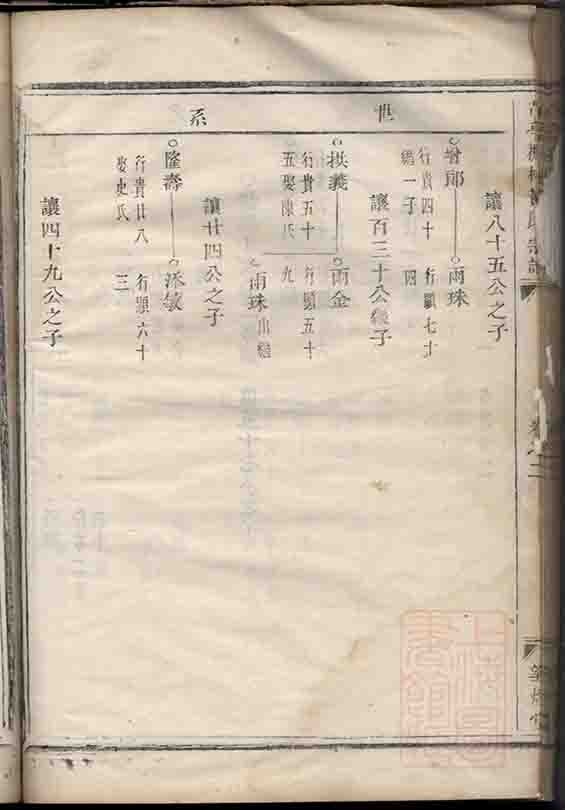 世系
讓八十五公之子
曾郎
行貴四十
繼一子
雨珠
行顯七十
四
讓百三十公繼子
拱義
行貴五十
五娶陳氏
雨金
行顯五十
九
雨珠出繼
讓廿四公之子
隆壽
行貴廿八
娶史氏
添敏
行顯六十
三
讓四十九公之子
卷之二